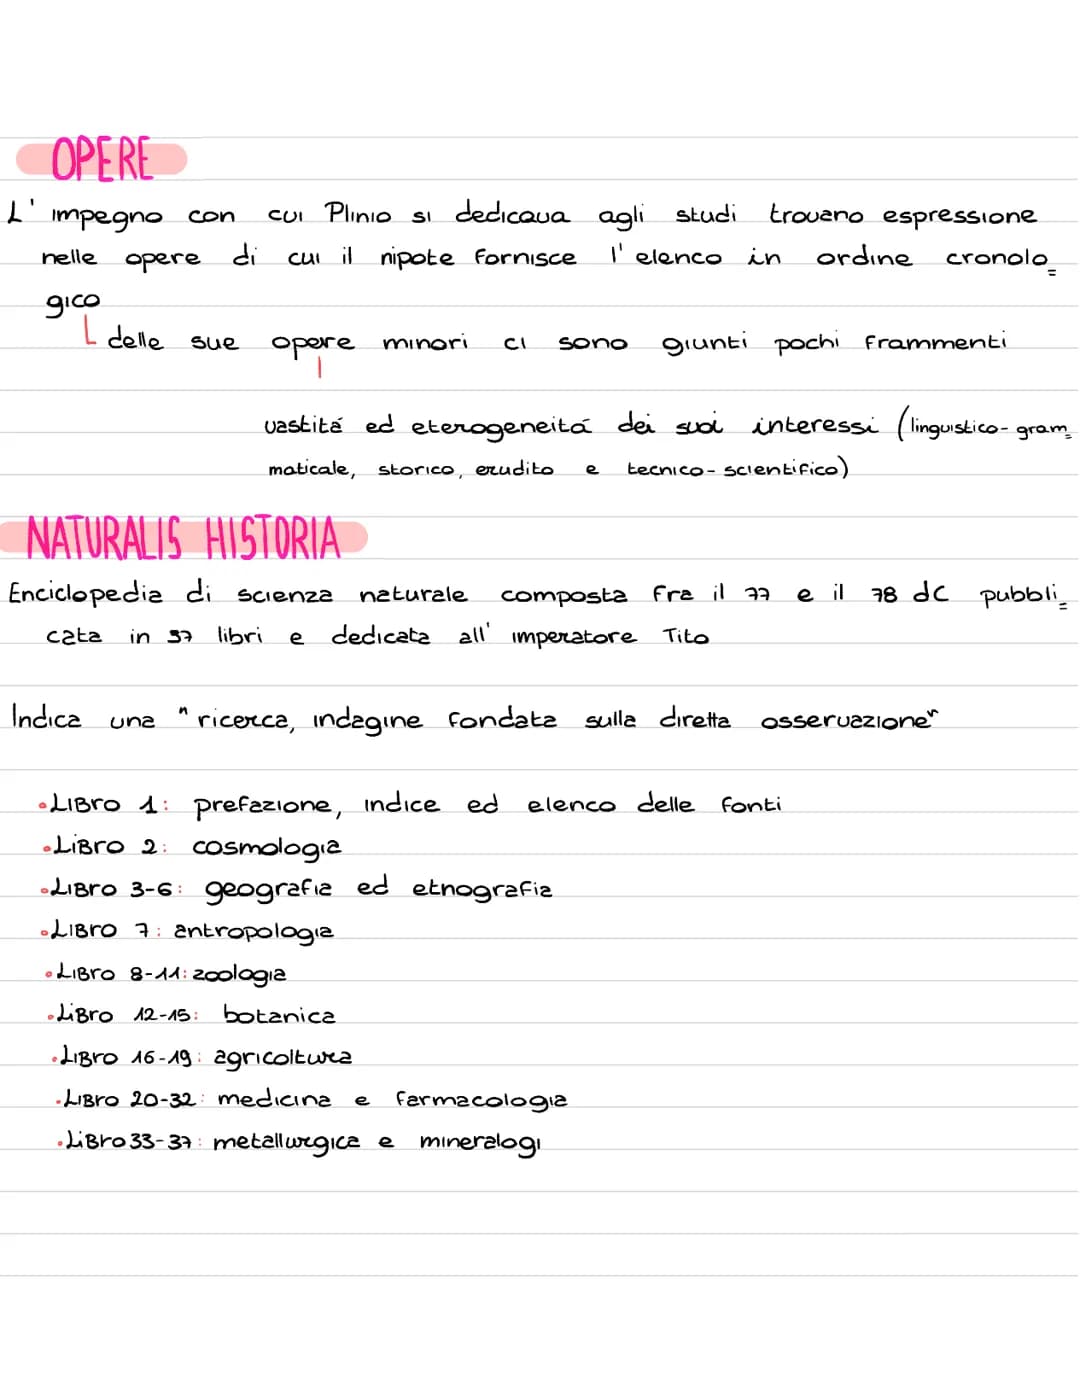 OPERE
L'impegno con cui Plinio si dedicava agli studi trovano espressione
nelle opere di cui il nipote fornisce l'elenco in ordine cronolo=
gico
delle sue opere minori ci sono giunti pochi frammenti
vastitá ed eterogeneitá dei suoi interessi (linguistico-gram=
maticale, storico, erudito e tecnico-scientifico)
NATURALIS HISTORIA
Enciclopedia di scienza naturale composta fra il 77 e il 78 dC pubbli=
cata in 37 libri e dedicata all'imperatore Tito
Indica una "ricerca, indagine fondata sulla diretta osservazione"
•LIBRO 1: prefazione, indice ed elenco delle fonti
•LIBRO 2: cosmologia
•LIBRO 3-6: geografia ed etnografia
•LIBRO 7: antropologia
•LIBRO 8-11: zoologia
•LIBRO 12-15: botanica
•LIBRO 16-19: agricoltura
•LIBRO 20-32: medicina e farmacologia
•LIBRO 33-37: metallurgica e mineralogi